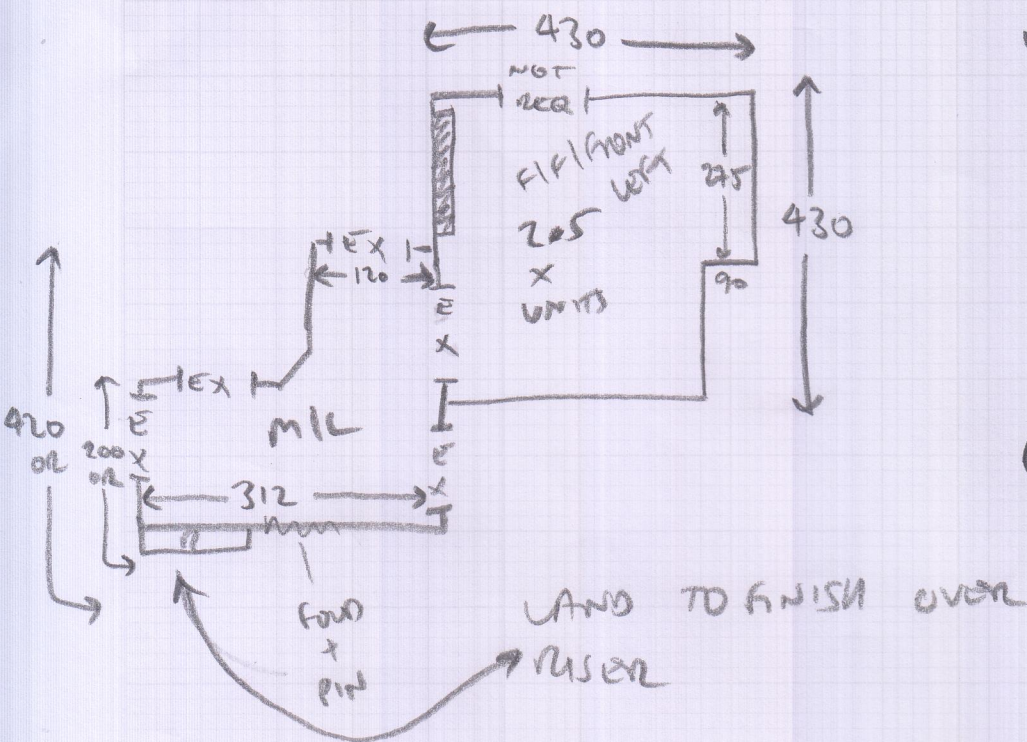 430
NOT
REQ
F/F/FRONT
LEFT
275
2.5
X
UNITS
430
90
EX
120
E
X
EX
M/L
E
X
420
OR
200
OR
E
X
312
R
FOLD
+
PIN
LAND TO FINISH OVER
RISER